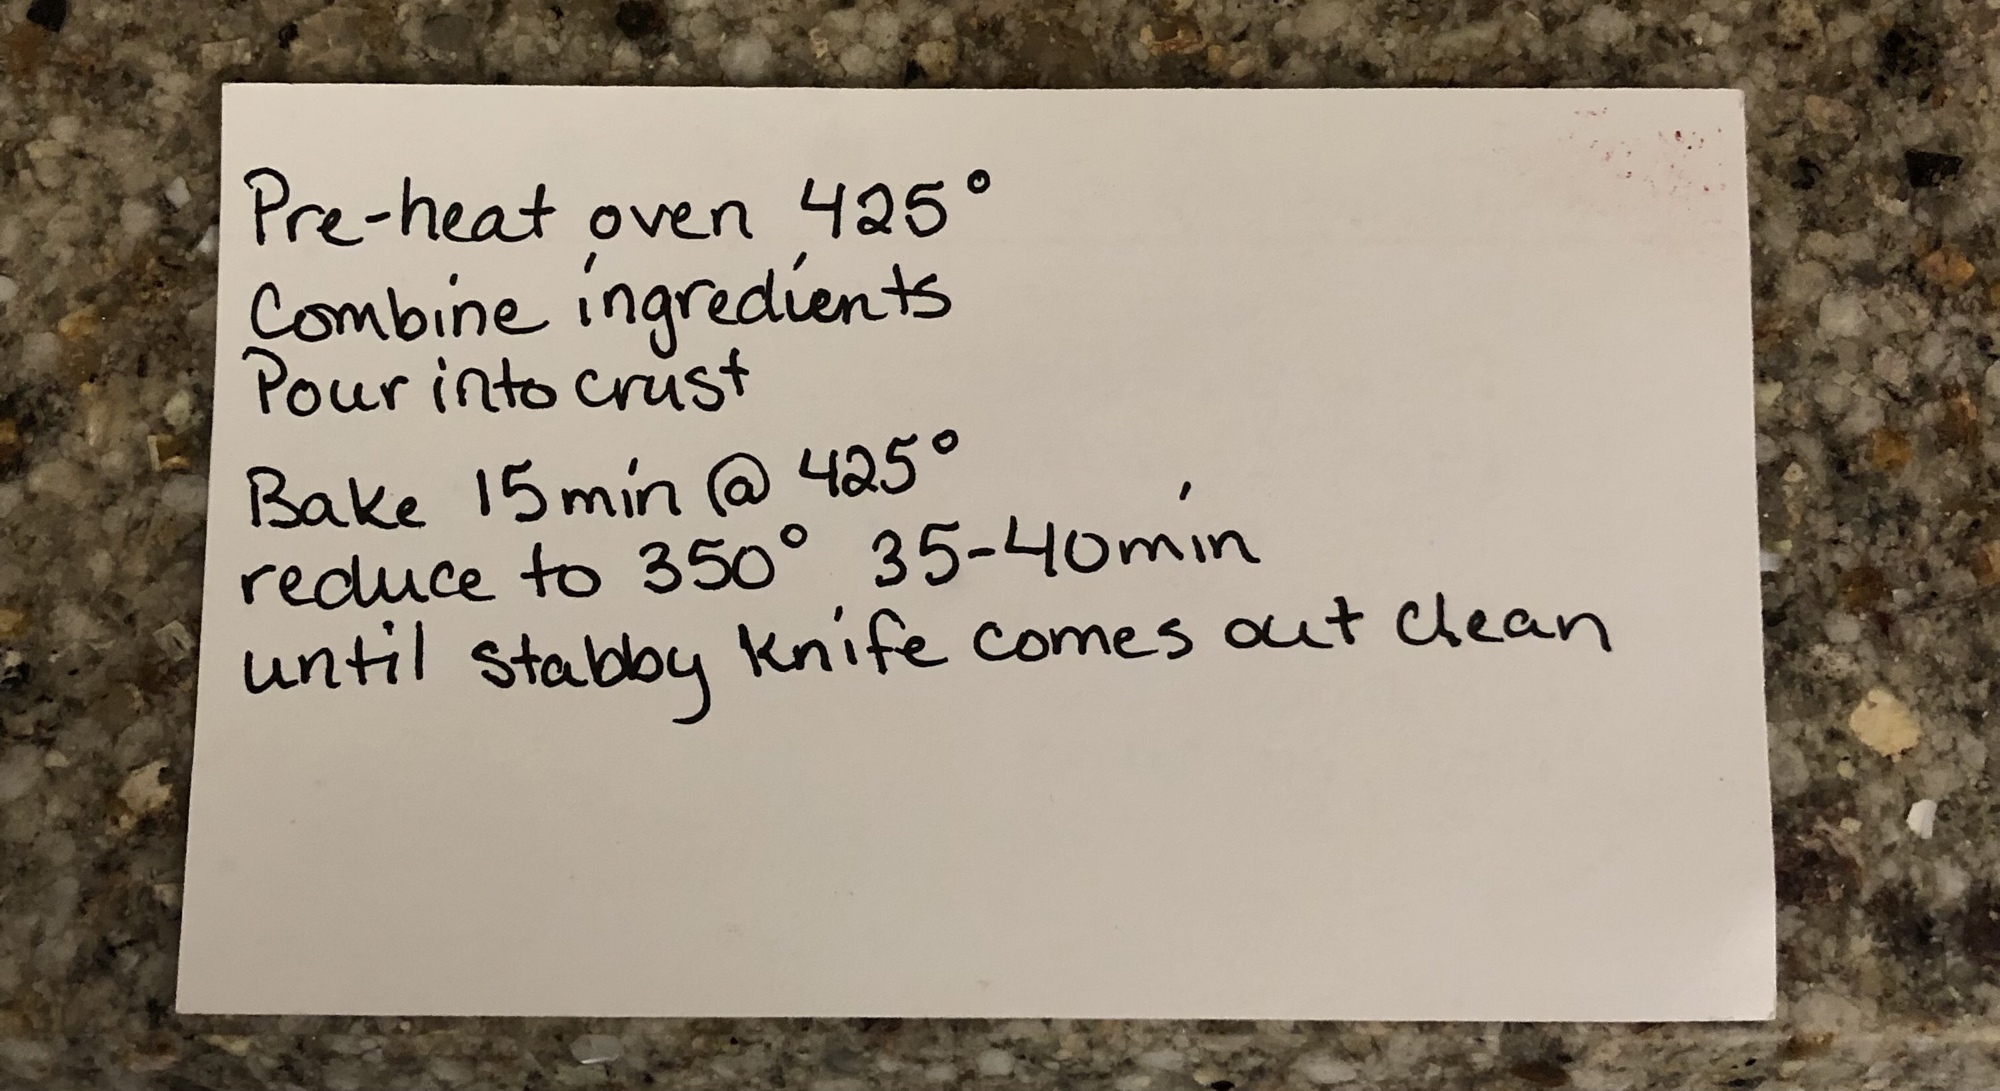 Pre-heat oven 425°
Combine ingredients
Pour into crust
Bake 15 min @ 425°
reduce to 350° 35-40 min
until stabby knife comes out clean